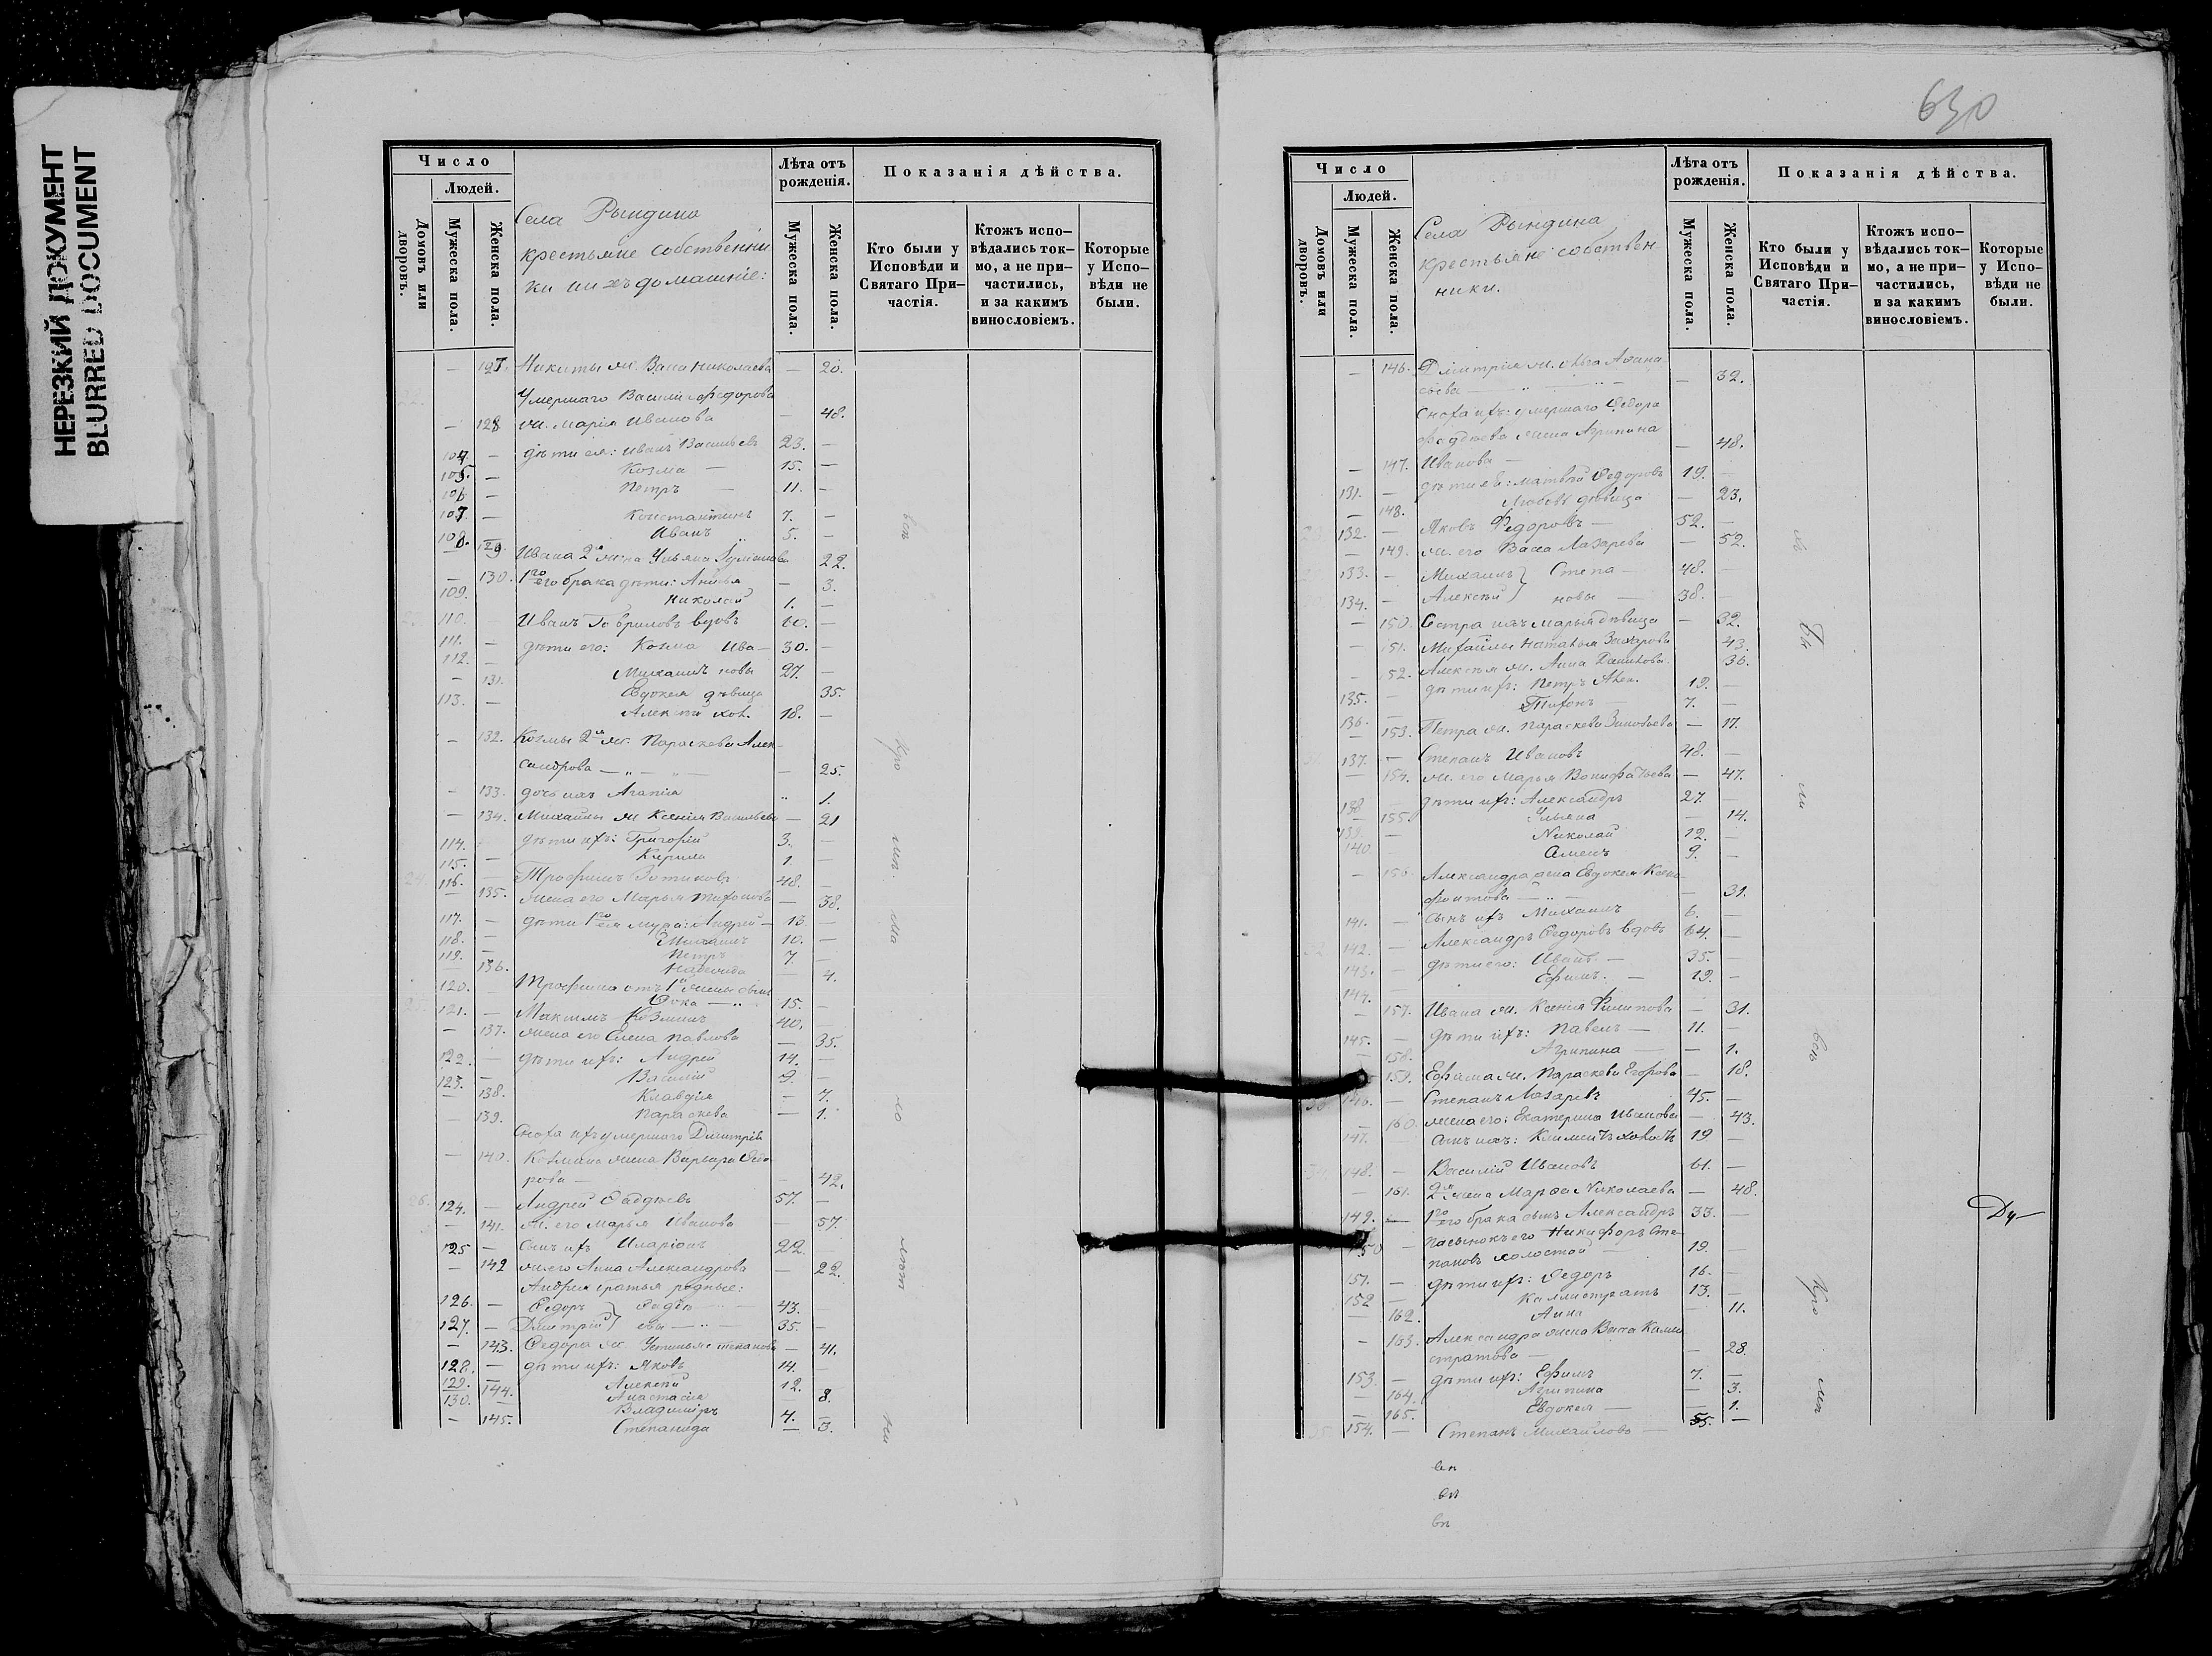 НЕРЕЗКИЙ ДОКУМЕНТ
BLURRED DOCUMENT
Число
Людей.
Домовъ или дворовъ.
Мужеска пола.
Женска пола.
Села Рындина
крестьяне собственни
ки ихъ домашніе:
Лѣта отъ рожденія.
Мужеска пола.
Женска пола.
Показанія дѣйства.
Кто были у Исповѣди и Святаго При-частія.
Ктожъ испо-вѣдались ток-мо, а не при-частились, и за какимъ винословіемъ.
Которые у Испо-вѣди не были.
— 127. Никиты ж. Васса Николаева — 20.
Умершаго Василія Федорова
— 128 ж. Марія Иванова — 48.
104. — дѣти ея: Иванъ Васильевъ 23. —
105. — Козма — 15. —
106 — Петръ — 11. —
107. — Константинъ 7. —
108. — Иванъ 5. —
129. Ивана 2я жена Ульяна 22.
— 130. 1го его брака дѣти: — 3.
109. Николай 1. —
110. Иванъ Гавриловъ вдовъ 60. —
111. — дѣти его: Козма Ива- 30. —
112. — Михаилъ новы 27. —
— 131. Евдокея дѣвица 35.
113. — Алексѣй хол. 18. —
— 132. Козмы 2я ж. Параскева Алек-
сандрова — „ — „ — — 25.
— 133. дочь ихъ Агапія „ 1.
— 134. Михаилы ж Ксенія Васильева — 21
114. дѣти ихъ: Григорій 3. —
115. — Кирила 1. —
24 116. — Трофимъ Зотиковъ 48. —
— 135. жена его Марья Тихонова — 38.
117. — дѣти 1го ея мужа: Андрей — 13 —
118. — Михаилъ 10. —
119. — Петръ 7. —
— 136. Надежда — 4.
120. Трофима отъ 1й жены сынъ
Фока — „ 15. —
25. 121. — Максимъ Козминъ 40. —
— 137. жена его Елена Павлова — 35.
122. — дѣти ихъ: Андрей 14. —
123. — Василій 9. —
— 138. Клавдія — 7.
— 139. Параскева — 1.
Сноха ихъ умершаго Димитрія
— 140. Козмина жена Варвара Федо
рова — — 42.
26. 124. — Андрей Фаддѣевъ 57. —
— 141. ж. его Марья Иванова — 57.
125 — Сынъ ихъ Иларіонъ 22. —
— 142 ж. его Анна Александрова — 22.
Андрея братья родные:
126. — Федоръ } Фаддѣ — 43. —
127. — Дмитрій } евы — „ — 35. —
— 143. Федора ж. Устинья Степанова — 41.
128. — дѣти ихъ: Яковъ 14. —
129. — Алексѣй 12.
130. 144. Анастасія 8.
— Владиміръ 4. —
— 145. Степанида — 3.
630
Число
Людей.
Домовъ или дворовъ.
Мужеска пола.
Женска пола.
Села Рындина
крестьяне собствен
ники.
Лѣта отъ рожденія.
Мужеска пола.
Женска пола.
Показанія дѣйства.
Кто были у Исповѣди и Святаго При-частія.
Ктожъ испо-вѣдались ток-мо, а не при-частились, и за какимъ винословіемъ.
Которые у Испо-вѣди не были.
— 146. Дмитрія ж. Ольга Афана
сьева — „ — „ — — 32.
Сноха ихъ: умершаго Федора
Фаддѣева жена Агрипина — 48.
— 147. Иванова —
131. — дѣти ея: Матвѣй Федоровъ 19. —
— 148. Любовь дѣвица — 23.
132. — Яковъ Федоровъ — 52. —
— 149. ж. его Васса Лазарева — 52.
133. — Михаилъ } Степа — 48. —
134. — Алексѣй } новы — 38. —
— 150. Сестра ихъ Марья дѣвица — 32.
— 151. Михайлы Наталья Захарова 43.
— 152. Алексѣя ж. Анна Данилова 36.
135. — дѣти ихъ: Петръ Алек. 19. —
136. — Тихонъ — 7. —
— 153. Петра ж. Параскева Зиновьева — 17.
137. — Степанъ Ивановъ 48. —
— 154. ж. его Марья Вонифатьева — 47.
138 — дѣти ихъ: Александръ 27. —
— 155. Ульяна — 14.
139. — Николай 12. —
140 — 9. —
— 156. Александра жена Евдокея Ксено
фонтова — „ — — 31.
141. — Сынъ ихъ Михаилъ 6. —
32 142. — Александръ Федоровъ вдовъ 64. —
143. — дѣти его: Иванъ — 35. —
144. — Ефимъ. — 19. —
— 157. Ивана ж. Ксенія Филипова — 31.
145. — дѣти ихъ: Павелъ — 11. —
— 158. Агрипина — — 1.
159. Ефима ж. Параскева Егорова — 18.
146. — Степанъ Лазаревъ 45. —
— 160. жена его: Екатерина Иванова — 43.
147. Сынъ ихъ: Климентъ холостъ 19 —
34. 148. — Василій Ивановъ 61. —
— 161. 2я жена Марфа Николаева — 48.
149. — 1го его брака сынъ Александръ 33. —
150 — Пасынокъ его Никифоръ Сте-
пановъ холостой — 19. —
151. — дѣти ихъ: Федоръ 16. —
152 — Каллистратъ 13. —
— 162. Анна — 11.
— 163. Александра жена Васса Калли
стратова — — 28.
153. — дѣти ихъ: Ефимъ 7. —
— 164. Агрипина — 3.
— 165. Евдокея — — 1.
35. 154. — Степанъ Михайловъ — 55. —
вп
вп
вп